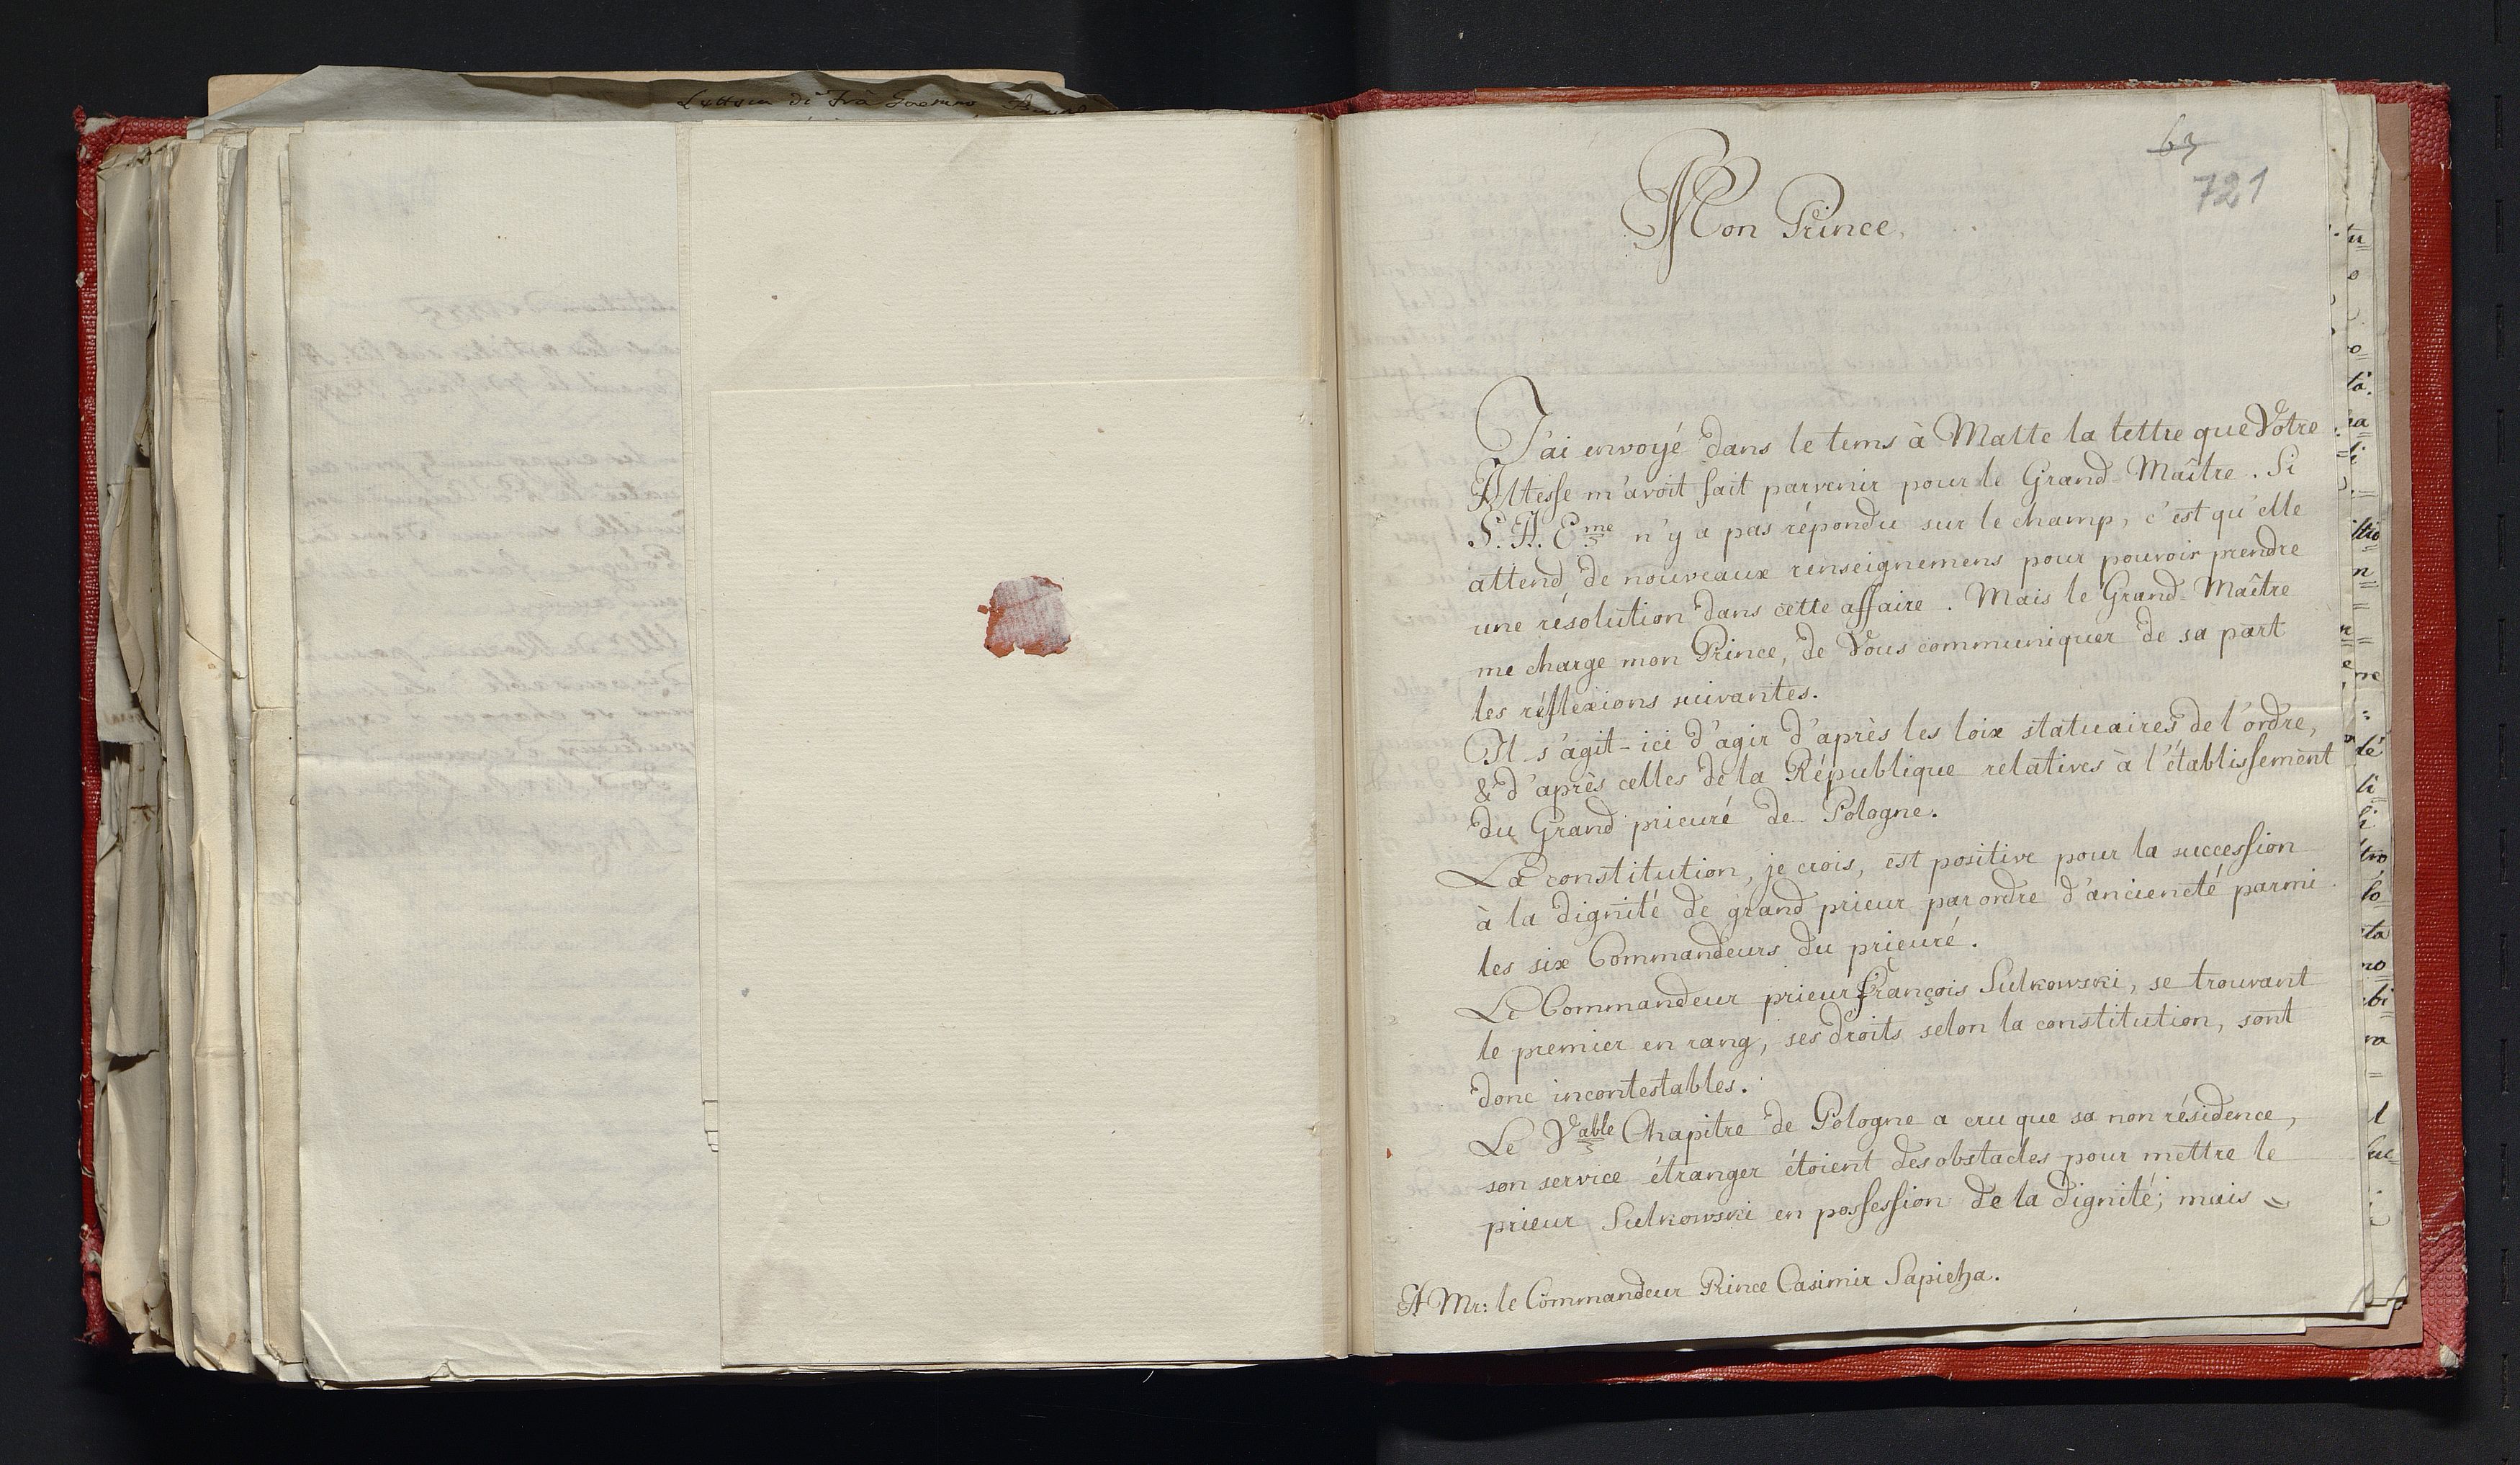 Lettera di Fra
63
721
Mon Prince,
J'ai envoyé dans le tems à Malte la lettre que Votre
Altesse m'avoit fait parvenir pour le Grand Maître. Si
S. A. Eme n'y a pas répondu sur le champ, c'est qu'elle
attend de nouveaux renseignemens pour pouvoir prendre
une résolution dans cette affaire. Mais le Grand-Maître
me charge mon Prince, de Vous communiquer de sa part
les réflexions suivantes.
Il s'agit-ici d'agir d'après les loix statuaires de l'ordre,
& d'après celles de la République relatives à l'établissement
du Grand prieuré de Pologne.
La constitution, je crois, est positive pour la succession
à la dignité de grand prieur par ordre d'ancieneté parmi
les six Commandeurs du prieuré.
Le Commandeur prieur François Sulkowski, se trouvant
le premier en rang, ses droits selon la constitution, sont
donc incontestables.
Le Vable Chapitre de Pologne a cru que sa non résidence,
son service étranger étoient des obstacles pour mettre le
prieur Sulkowski en possession de la dignité; mais =
A Mr: le Commandeur Prince Casimir Sapieha.